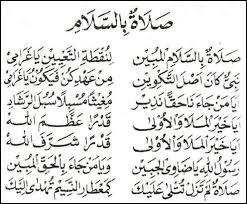 صَلَاةٌ بِالسَّلَامِ
صَلَاةٌ بِالسَّلَامِ الْمُبِيْنِ لِنُقْطَةِ التَّعْيِيْنِ يَا غَرَامِيْ
نَبِيٌّ كَانَ أَصْلَ التَّكْوِيْنِ مِنْ عَهْدِ كُنْ فَيَكُوْنُ يَا غَرَامِيْ
أَيَا مَنْ جَاءَنَا حَقًّا نَذِيْر مُغِيْثًا مُسْبِلًا سُبُلَ الرَّشَادِ
أَيَا خَيْرَ الْمَلَا وَالْأَوْلَى قَدْرًا عَظَّمَ الله
أَيَا خَيْرَ الْمَلَا وَالْأَوْلَى قَدْرًا شَرَّفَ الله
رَسُوْلُ اللهِ يَا ضَاوِي الْجَبِيْن وَيَا مَنْ جَاءَ بِالْحَقِّ الْمُبِيْن
صَلَاةٌ لَمْ تَزَلْ تُتْلَى عَلَيْكَ كَمِعْطَارِ النَّسِيْمِ تُهْدَى إِلَيْكَ